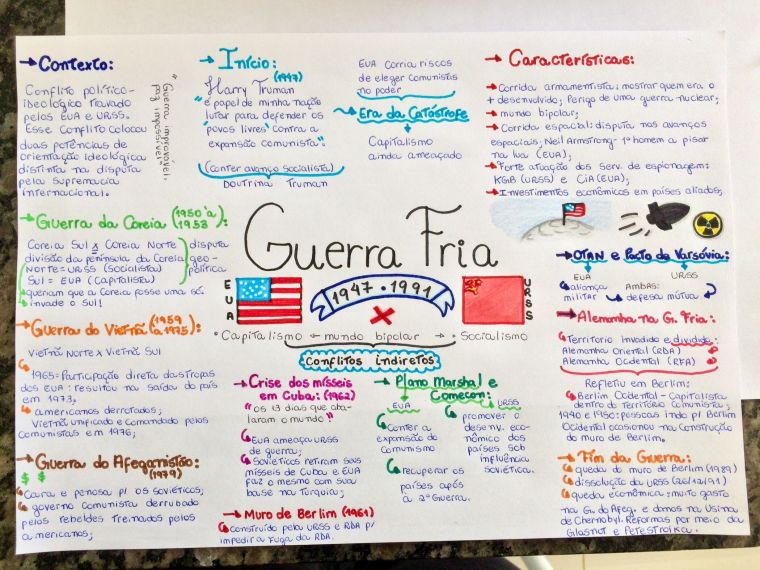 →Contexto:
Conflito político-
ideológico travado
pelos EUA e URSS.
Esse conflito colocou
duas potências de
orientação ideológica
distinta na disputa
pela supremacia
internacional.
"Guerra improvável,
paz impossível"
→Início:
(1947)
Harry Truman
"é papel de minha nação
lutar para defender os
'povos livres' contra a
expansão comunista".
(conter avanço socialista)
Doutrina Truman
EUA corria riscos
de eleger comunistas
no poder
→Era da Catástrofe
Capitalismo
ainda ameaçado
→Características:
→Corrida armamentista: mostrar quem era o
+ desenvolvido; Perigo de uma guerra nuclear;
→mundo bipolar;
→Corrida espacial: disputa nos avanços
espaciais; Neil Armstrong - 1º homem a pisar
na lua (EUA);
→Forte atuação dos serv. de espionagem:
KGB (URSS) e CIA (EUA);
→Investimentos econômicos em países aliados;
→Guerra da Coreia (1950 à
1953):
Coreia Sul x Coreia Norte
divisão da península da Coreia
Norte = URSS (socialista)
Sul = EUA (capitalista)
disputa
geo-
política
queriam que a Coreia fosse uma só.
invade o Sul!
Guerra Fria
EUA
1947 • 1991
URSS
• Capitalismo ← mundo bipolar → • Socialismo
Conflitos Indiretos
→OTAN e Pacto de Varsóvia:
EUA
URSS
aliança
militar
AMBAS:
defesa mútua
→Alemanha na G. Fria:
Território invadido e dividido:
Alemanha Oriental (RDA)
Alemanha Ocidental (RFA)
Refletiu em Berlim:
Berlim Ocidental - Capitalista
dentro do território comunista;
1940 e 1950: pessoas indo p/ Berlim
Ocidental ocasionou na Construção
do muro de Berlim.
→Guerra do Vietnã (1959
a 1975):
Vietnã Norte x Vietnã Sul
1965: Participação direta das tropas
dos EUA: resultou na saída do país
em 1973,
americanos derrotados;
Vietnã unificado e comandado pelos
comunistas em 1976;
→Guerra do Afeganistão:
(1979)
$ $
Caira e penosa p/ os soviéticos;
governo comunista derrubado
pelos rebeldes treinados pelos
americanos;
→Crise dos mísseis
em Cuba: (1962)
"os 13 dias que aba-
laram o mundo"
EUA ameaça URSS
de guerra;
Soviéticos retiram seus
mísseis de Cuba e EUA
faz o mesmo com sua
base na Turquia;
→Muro de Berlim (1961)
construído pela URSS e RDA p/
impedir a fuga da RDA.
→Plano Marshal e
Comecon:
EUA
URSS
Conter a
expansão do
comunismo
recuperar os
países após
a 2ª Guerra.
promover o
desenv. eco-
nômico dos
países sob
influência
soviética.
→Fim da Guerra:
queda do muro de Berlim (1989)
dissolução da URSS (26/12/91)
queda econômica: muito gasto
na G. do Afeg. e danos na Usina
de Chernobyl. Reformas por meio da
Glasnot e Perestroika.